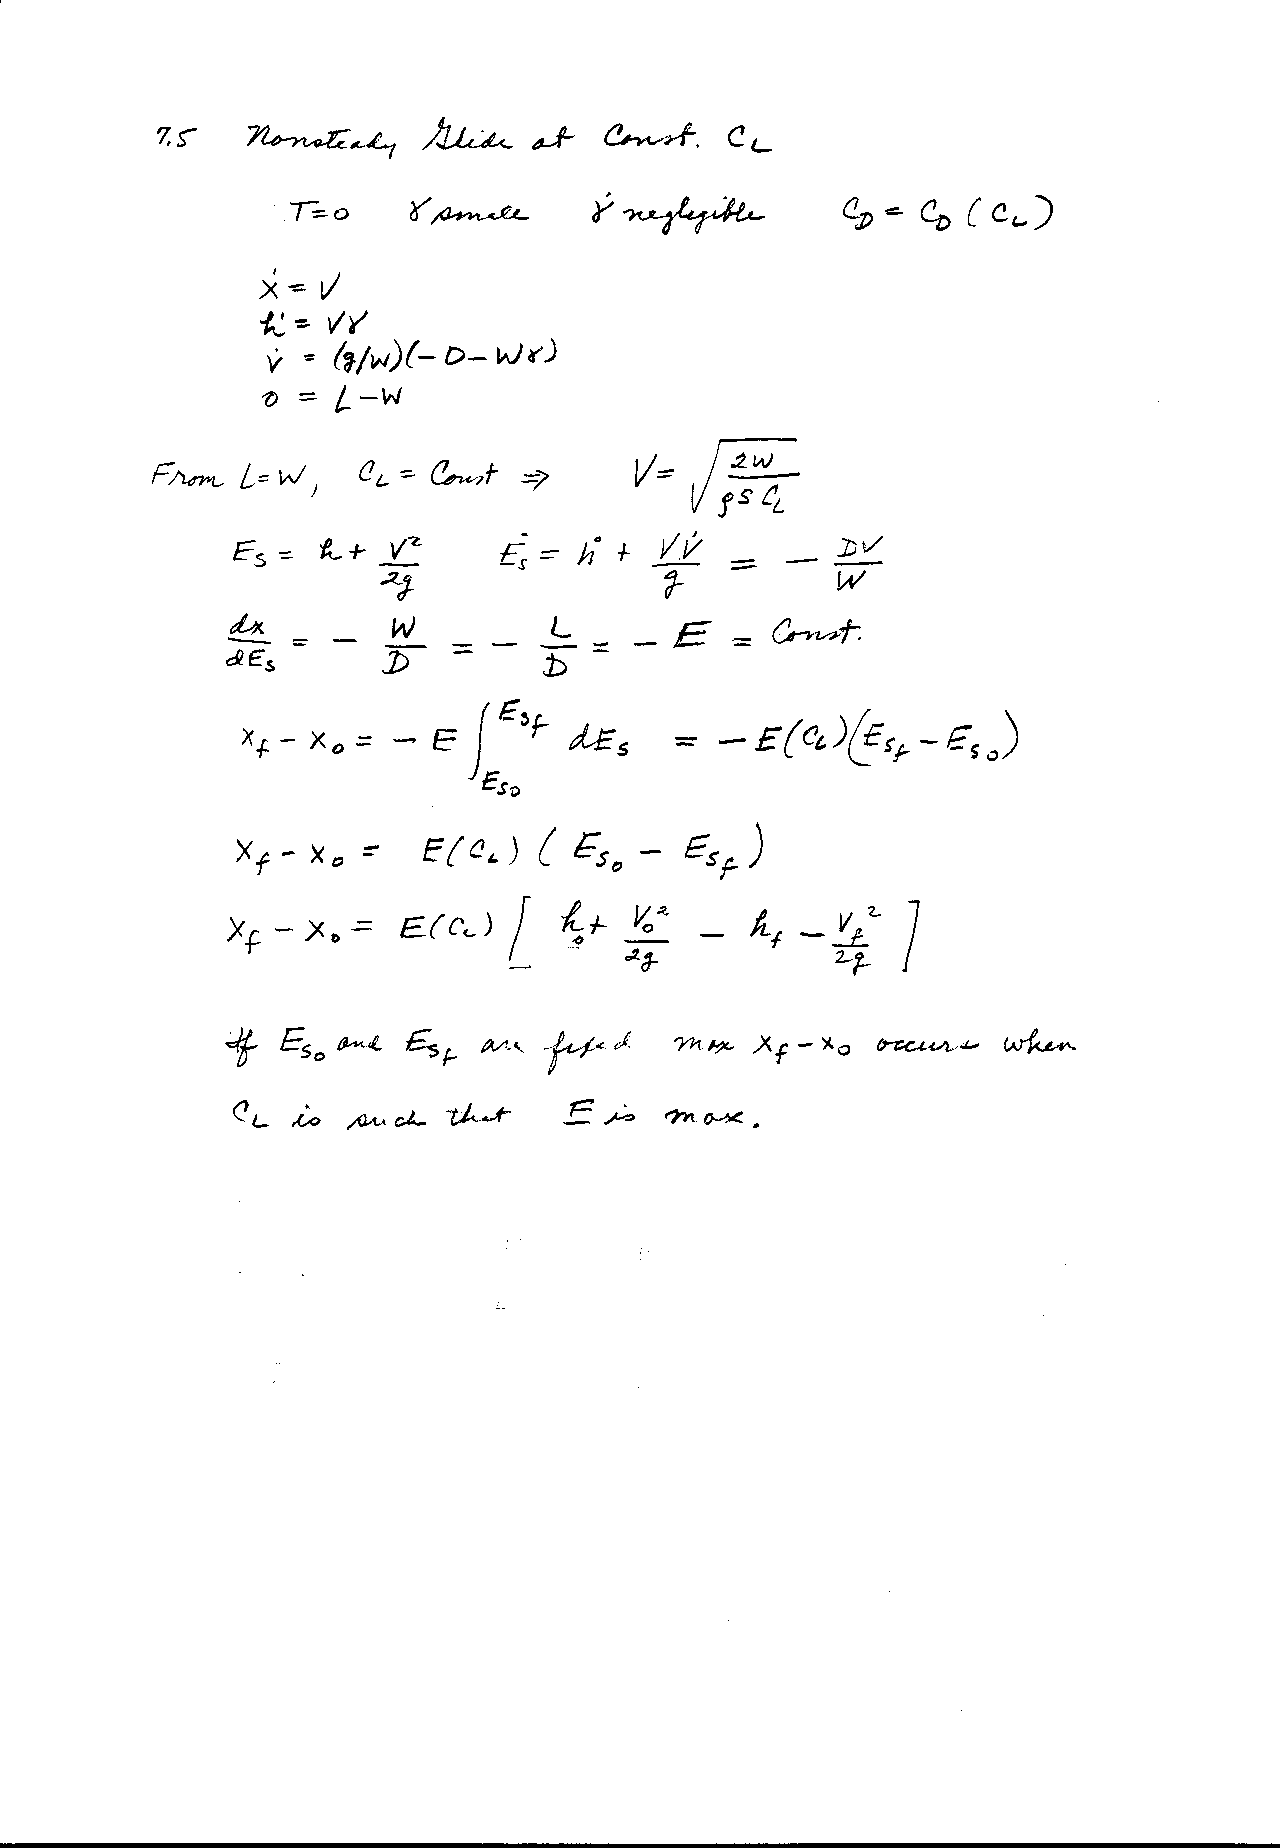 7.5 Nonsteady Glide at Const. C_L
T=0 γ small γ̇ neglegible C_D = C_D (C_L)
ẋ = V
ḣ = Vγ
V̇ = (g/W)(-D-Wγ)
0 = L-W
From L=W, C_L = Const ⇒ V = √(2W/(ρSC_L))
E_s = h + V²/2g Ė_s = ḣ + VV̇/g = - DV/W
dx/dE_s = - W/D = - L/D = - E = Const.
x_f - x_0 = - E ∫_{E_s0}^{E_sf} dE_s = - E(C_L)(E_sf - E_s0)
x_f - x_0 = E(C_L) ( E_s0 - E_sf )
x_f - x_0 = E(C_L) [ h_0 + V_0²/2g - h_f - V_f²/2g ]
If E_s0 and E_sf are fixed max x_f - x_0 occurs when
C_L is such that E is max.